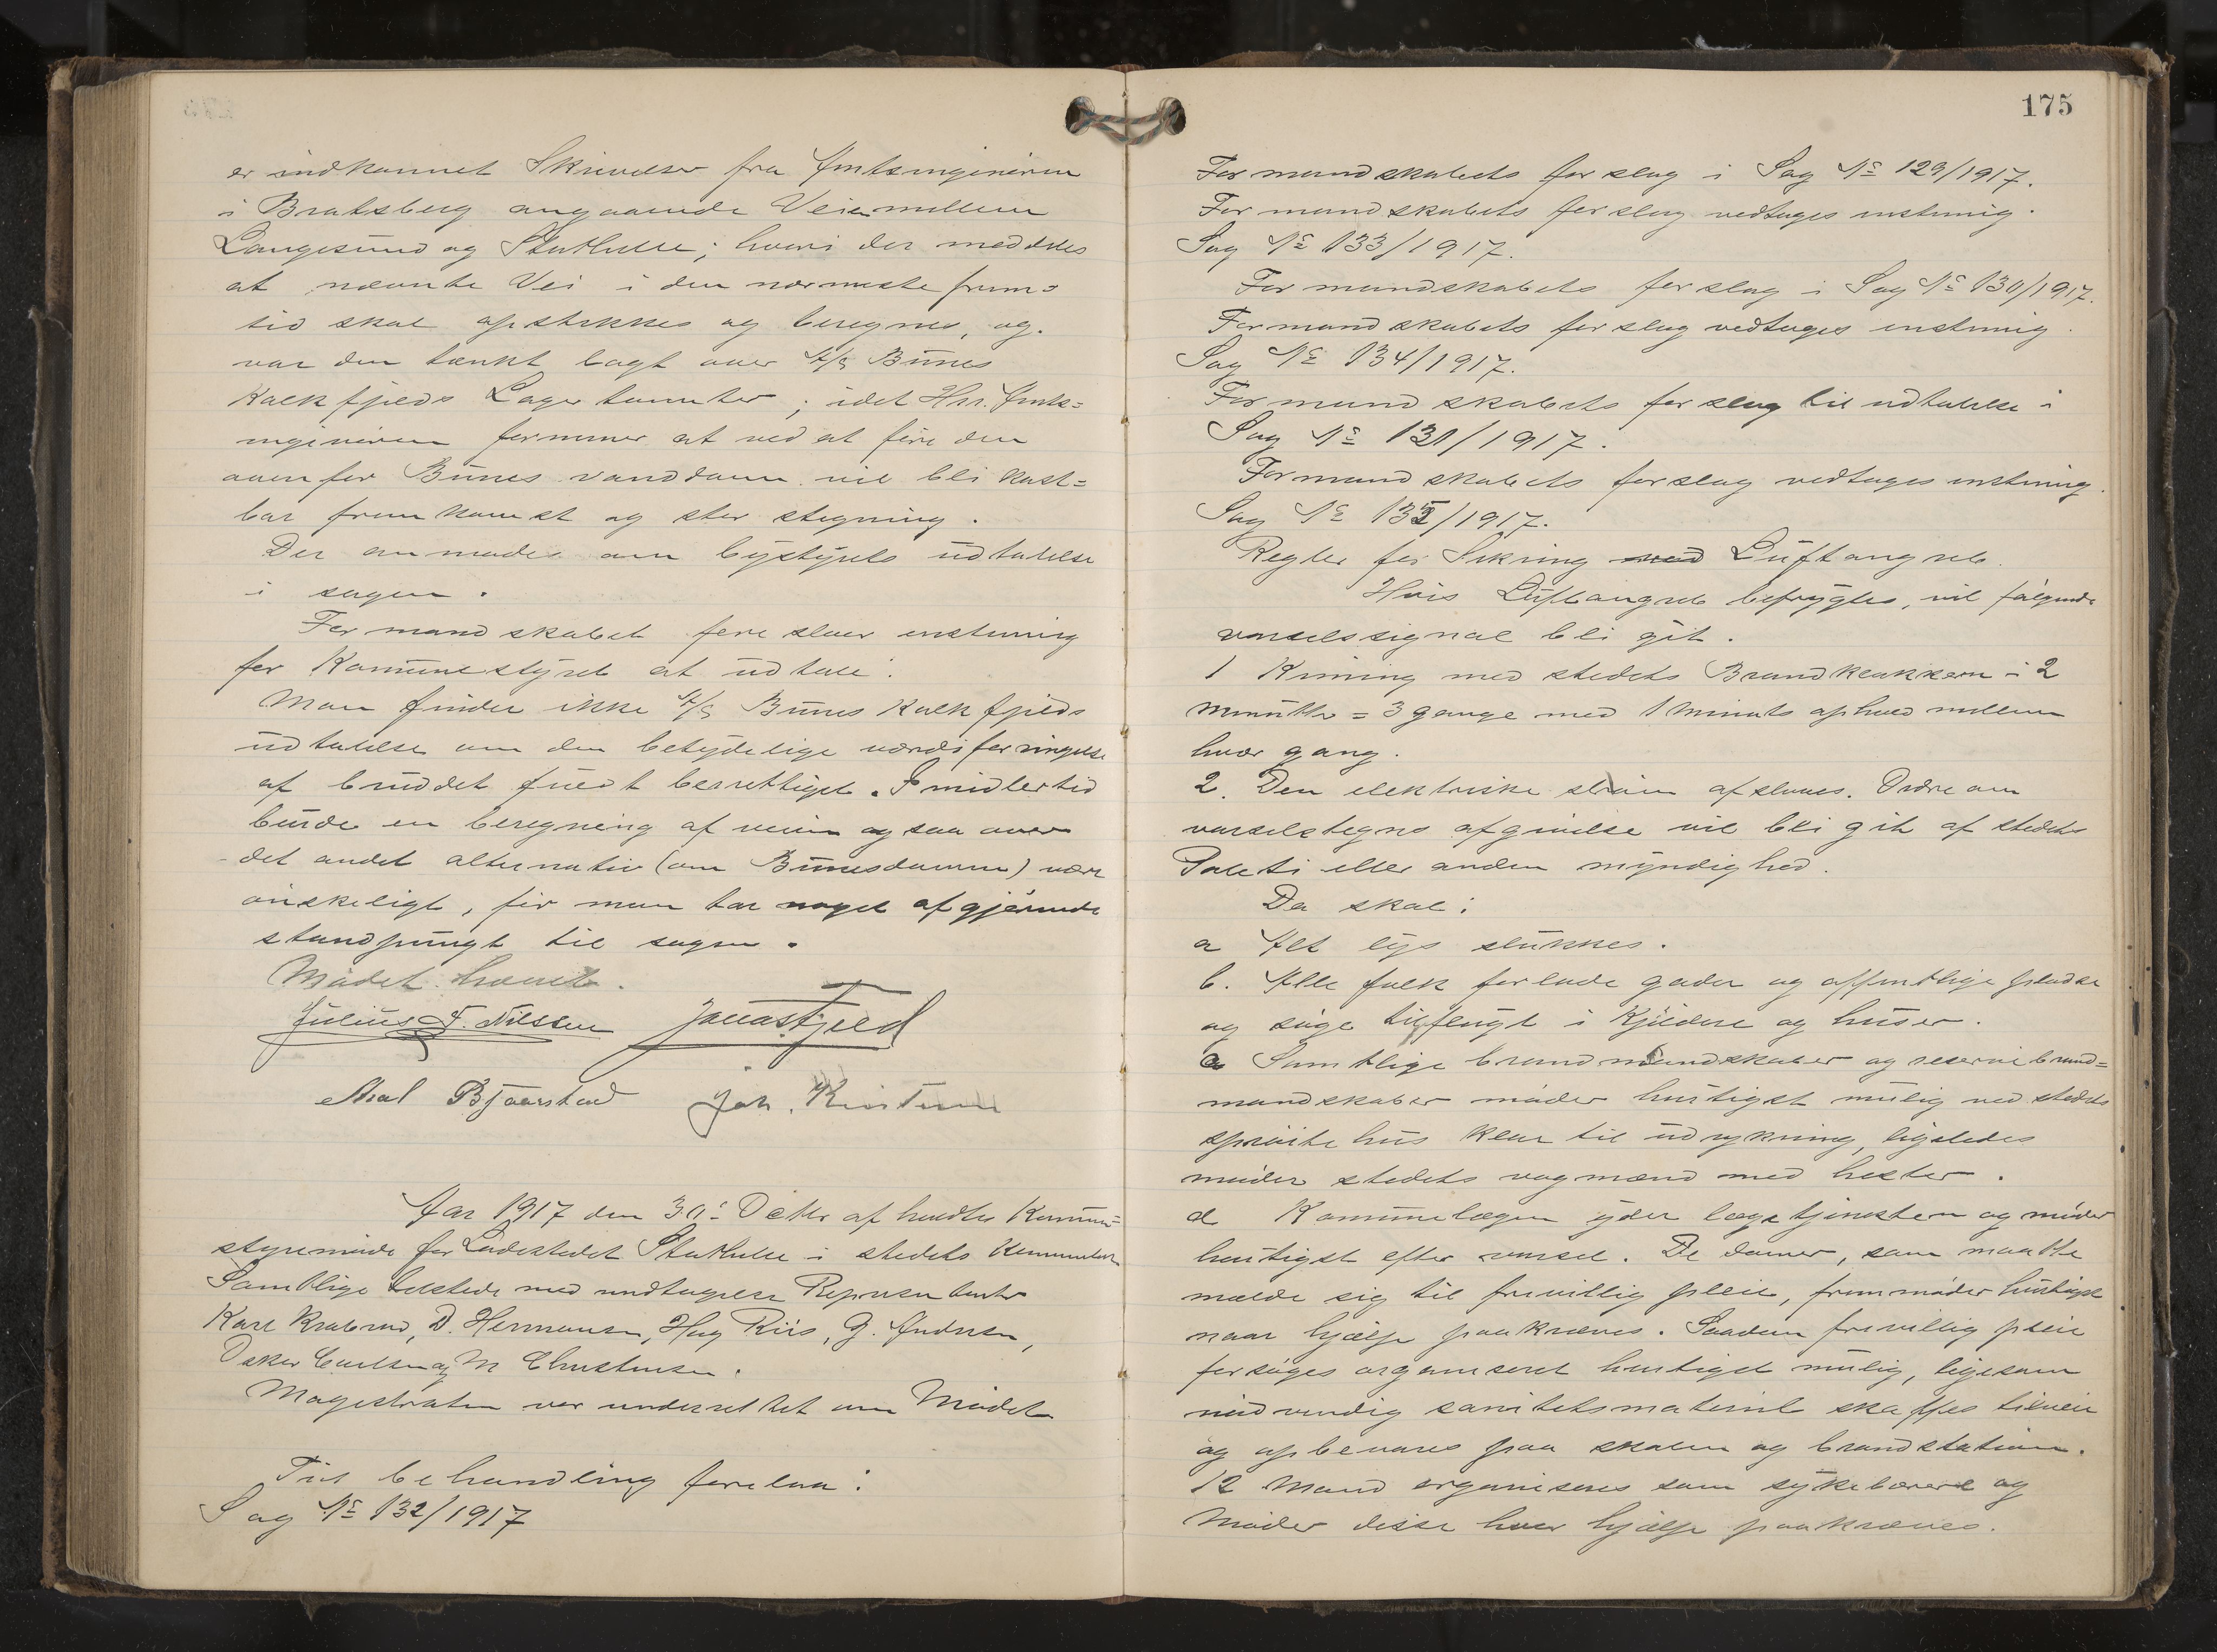 er indkommet Skrivelser fra Amtsingeniøren
i Bratsberg angaaende Veien mellem
Langesund og Stathelle; hvori der meddeles
at nævnte Vei i den nærmeste frem=
tid skal opstikkes og beregnes, og
var den tænkt lagt over A/S Bunes
Kalkfjelds Lagertomter; idet Hrr. Amts=
ingeniøren formener at ved at føre den
ovenfor Bunes vanddam vil bli kost=
bar fremkomst og stor stegning.
Der anmodes om bystyrets udtalelse
i sagen.
Formandskabet foreslaar enstemig
for Komunestyret at udtale:
Man finder ikke A/S Bunes Kalkfjelds
udtalelse om den betydelige værdiforringelse
af bruddet fuldt berettiget. Imidlertid
burde en beregning af veien ogsaa over
det andet alternativ (om Bunesdammen) være
ønskeligt, før man tar noget afgjørende
standpungt til sagen.
Mødet hævet.
Julius F. Nilssen Jonas Fjeld
Aksel Bjaarstad Joh. Kristensen
Aar 1917 den 30te Oktbr afholdtes Kommune=
styremøde for Ladestedet Stathelle i stedets Kommunelok
Samtlige tilstede med undtagelse Repræsentanter
Karl Krabrød, D. Hermansen, Hag Riis, G. Andresen,
Osker Carlsen og M Christensen.
Magestraten var underrettet om Mødet
Til behandling forelaa:
Sag No 132/1917
175
Formandskabets forslag i Sag No 129/1917.
Formandskabets forslag vedtages enstemig.
Sag No 133/1917.
Formandskabets forslag i Sag No 130/1917.
Formandskabets forslag vedtages enstemig.
Sag No 134/1917.
Formandskabets forslag til udtalelse i
Sag No 131/1917.
Formandskabets forslag vedtages enstemig.
Sag No 135/1917.
Regler for Sikring mod Luftangreb.
Hvis Luftangreb befrygtes, vil følgende
varselssignal bli git.
1 Kiming med stedets Brandklokken i 2
Minutter = 3 gange med 1 minuts ophold mellem
hver gang.
2. Den elektriske strøm afslaaes. Ordre om
varselstegns afgivelse vil bli git af stedets
Politi eller anden myndighed.
Da skal:
a Alt lys slukkes.
b. Alle folk forlade gader og offentlige pladse
og søge tilflugt i Kjeldere og huser.
c Samtlige brandmandskaber og reservebrand=
mandskaber møder hurtigst mulig ved stedets
sprøitehus klar til udrykning, ligeledes
møder stedets vogmænd med hester.
d Kommunelægen yder lægetjenesten og møder
hurtigst efter varsel. De damer, som maatte
melde sig til frivillig pleie, fremmøder hurtigst
naar hjælp paakræves. Saadan frivillig pleie
forsøges organiseret hurtigst mulig, ligesom
nødvendig sanitetsmateriel skaffes tilveie
og opbevares paa skolen og brandstation.
12 Mand organiseres som sykebærere og
Møder disse hvor hjælp paakræves.